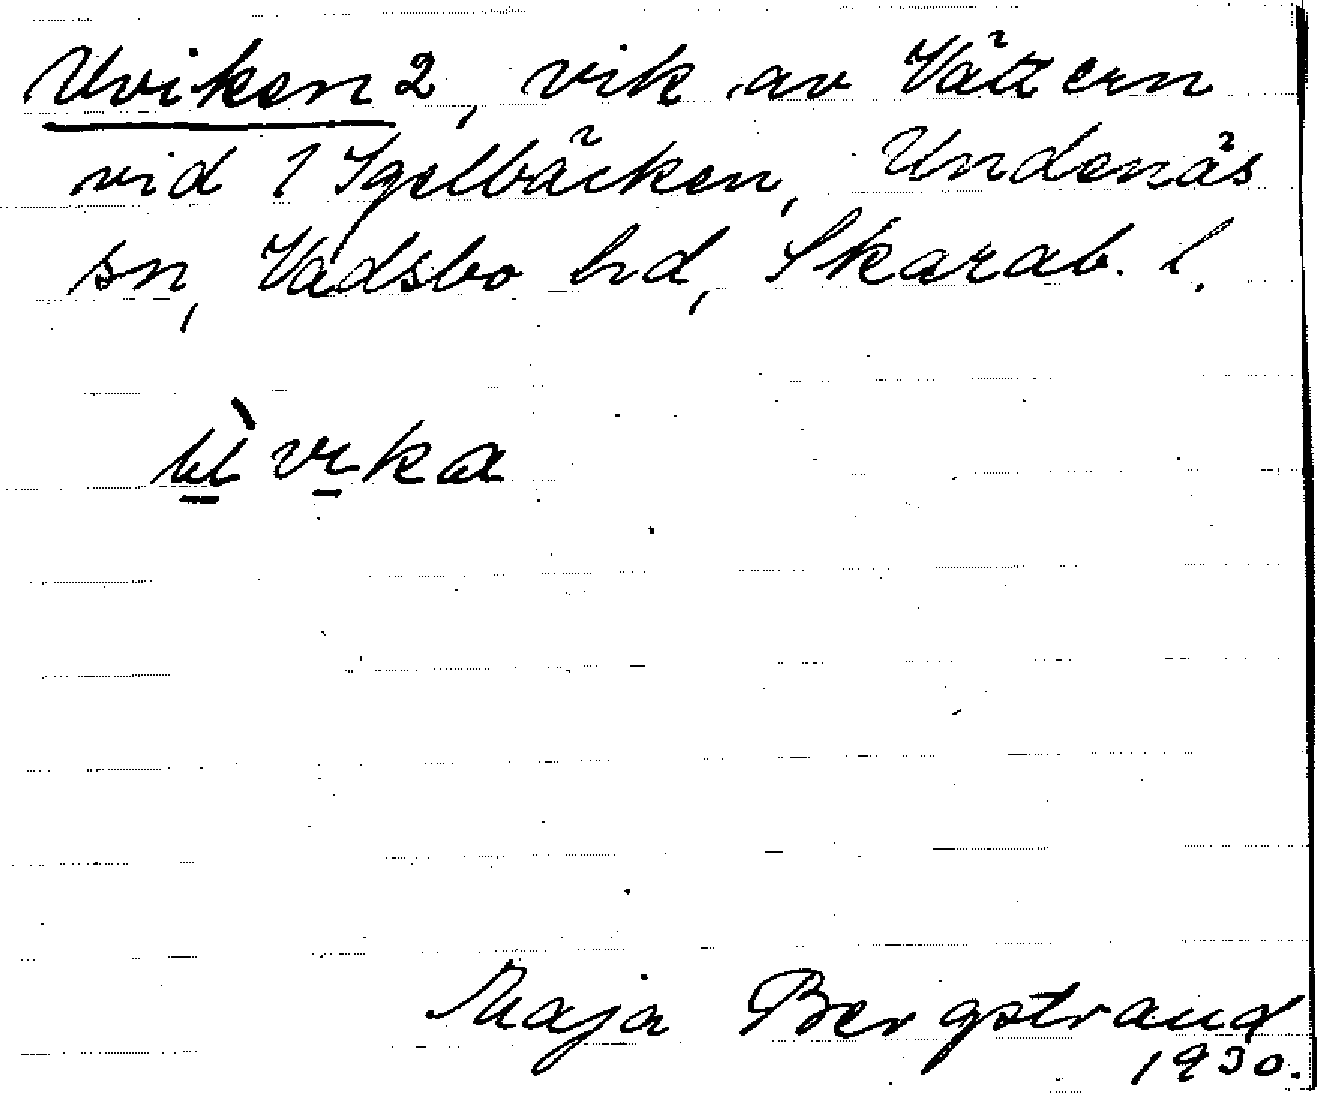 Uviken 2, vik av Vättern
vid 1 Igelbäcken, Undenäs
sn, Vadsbo hd, Skarab. l.
ùvika
Maja Bergstrand
1930.